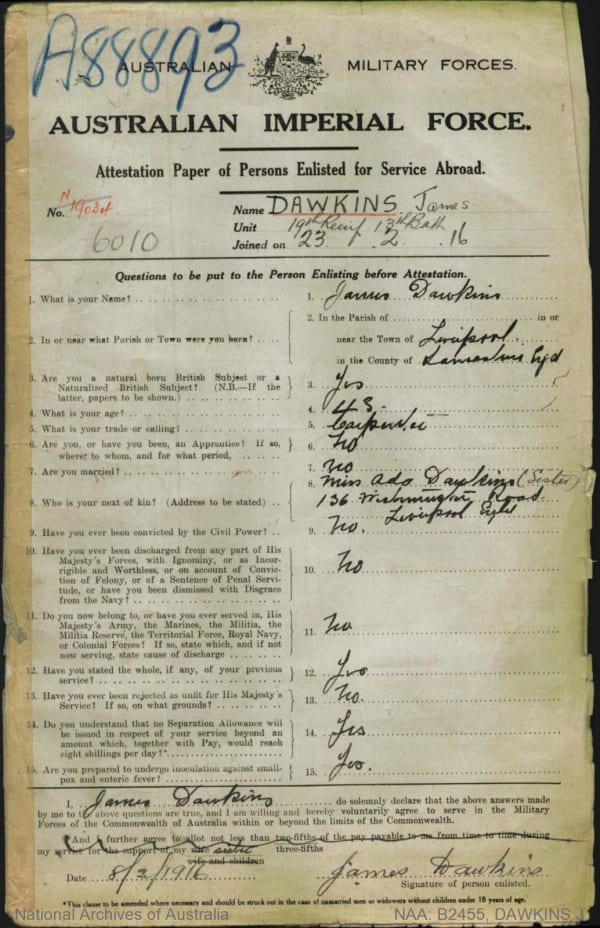 A88893
AUSTRALIAN MILITARY FORCES.
AUSTRALIAN IMPERIAL FORCE.
Attestation Paper of Persons Enlisted for Service Abroad.
No. N 19024
Name DAWKINS James
6010
Unit 19th Reinf 13th Batt
Joined on 23 . 2 . 16
Questions to be put to the Person Enlisting before Attestation.
1. What is your Name? 1. James Dawkins
2. In or near what Parish or Town were you born? 2. In the Parish of in or
near the Town of Liverpool
in the County of Lancashire Egd
3. Are you a natural born British Subject or a
Naturalized British Subject? (N.B.—If the
latter, papers to be shown.) 3. Yes
4. What is your age? 4. 43
5. What is your trade or calling? 5. Carpenter
6. Are you, or have you been, an Apprentice? If so,
where, to whom, and for what period, 6. No
7. Are you married? 7. No
8. Who is your next of kin? (Address to be stated) 8. Miss Ada Dawkins (Sister)
136 Road
Liverpool Egd
9. Have you ever been convicted by the Civil Power? 9. No.
10. Have you ever been discharged from any part of His
Majesty's Forces, with Ignominy, or as Incor-
rigible and Worthless, or on account of Convic-
tion of Felony, or of a Sentence of Penal Servi-
tude, or have you been dismissed with Disgrace
from the Navy? 10. No
11. Do you now belong to, or have you ever served in, His
Majesty's Army, the Marines, the Militia, the
Militia Reserve, the Territorial Force, Royal Navy,
or Colonial Forces? If so, state which, and if not
now serving, state cause of discharge 11. No
12. Have you stated the whole, if any, of your previous
service? 12. Yes
13. Have you ever been rejected as unfit for His Majesty's
Service? If so, on what grounds? 13. No.
14. Do you understand that no Separation Allowance will
be issued in respect of your service beyond an
amount which, together with Pay, would reach
eight shillings per day? 14. Yes
15. Are you prepared to undergo inoculation against small-
pox and enteric fever? 15. Yes.
I, James Dawkins do solemnly declare that the above answers made
by me to the above questions are true, and I am willing and hereby voluntarily agree to serve in the Military
Forces of the Commonwealth of Australia within or beyond the limits of the Commonwealth.
*And I further agree to allot not less than two-fifths of the pay payable to me from time to time during
my service for the support of my wife sister three-fifths
wife and children
Date 8/2/1916 James Dawkins
Signature of person enlisted.
*This clause to be amended where necessary and should be struck out in the case of unmarried men or widowers without children under 18 years of age.
National Archives of Australia NAA: B2455, DAWKINS J